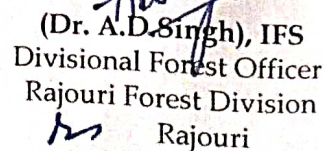 (Dr. A.D.Singh), IFS
Divisional Forest Officer
Rajouri Forest Division
Rajouri